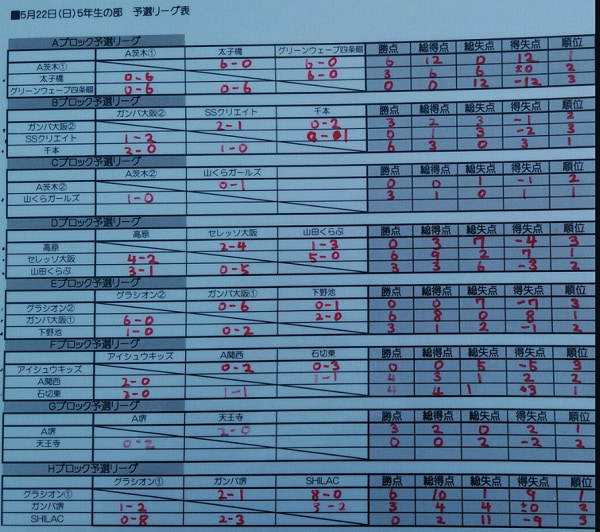 ■5月22日(日)5年生の部 予選リーグ表
Aブロック予選リーグ
A茨木① 太子橋 グリーンウェーブ四条畷 勝点 総得点 総失点 得失点 順位
A茨木① 6-0 6-0 6 12 0 12 1
太子橋 0-6 6-0 3 6 6 ±0 2
グリーンウェーブ四条畷 0-6 0-6 0 0 12 -12 3
Bブロック予選リーグ
ガンバ大阪② SSクリエイト 千本 勝点 総得点 総失点 得失点 順位
ガンバ大阪② 2-1 0-2 3 2 3 -1 2
SSクリエイト 1-2 0-1 0 1 3 -2 3
千本 2-0 1-0 6 3 0 3 1
Cブロック予選リーグ
A茨木② 山くらガールズ 勝点 総得点 総失点 得失点 順位
A茨木② 0-1 0 0 1 -1 2
山くらガールズ 1-0 3 1 0 1 1
Dブロック予選リーグ
高原 セレッソ大阪 山田くらぶ 勝点 総得点 総失点 得失点 順位
高原 2-4 1-3 0 3 7 -4 3
セレッソ大阪 4-2 5-0 6 9 2 7 1
山田くらぶ 3-1 0-5 3 3 6 -3 2
Eブロック予選リーグ
グラシオン② ガンバ大阪① 下野池 勝点 総得点 総失点 得失点 順位
グラシオン② 0-6 0-1 0 0 7 -7 3
ガンバ大阪① 6-0 2-0 6 8 0 8 1
下野池 1-0 0-2 3 1 2 -1 2
Fブロック予選リーグ
アイシュウキッズ A関西 石切東 勝点 総得点 総失点 得失点 順位
アイシュウキッズ 0-2 0-3 0 0 5 -5 3
A関西 2-0 1-1 4 3 1 2 2
石切東 3-0 1-1 4 4 1 +3 1
Gブロック予選リーグ
A堺 天王寺 勝点 総得点 総失点 得失点 順位
A堺 2-0 3 2 0 2 1
天王寺 0-2 0 0 2 -2 2
Hブロック予選リーグ
グラシオン① ガンバ堺 SHILAC 勝点 総得点 総失点 得失点 順位
グラシオン① 2-1 8-0 6 10 1 9 1
ガンバ堺 1-2 3-2 3 4 4 ±0 2
SHILAC 0-8 2-3 0 2 11 -9 3